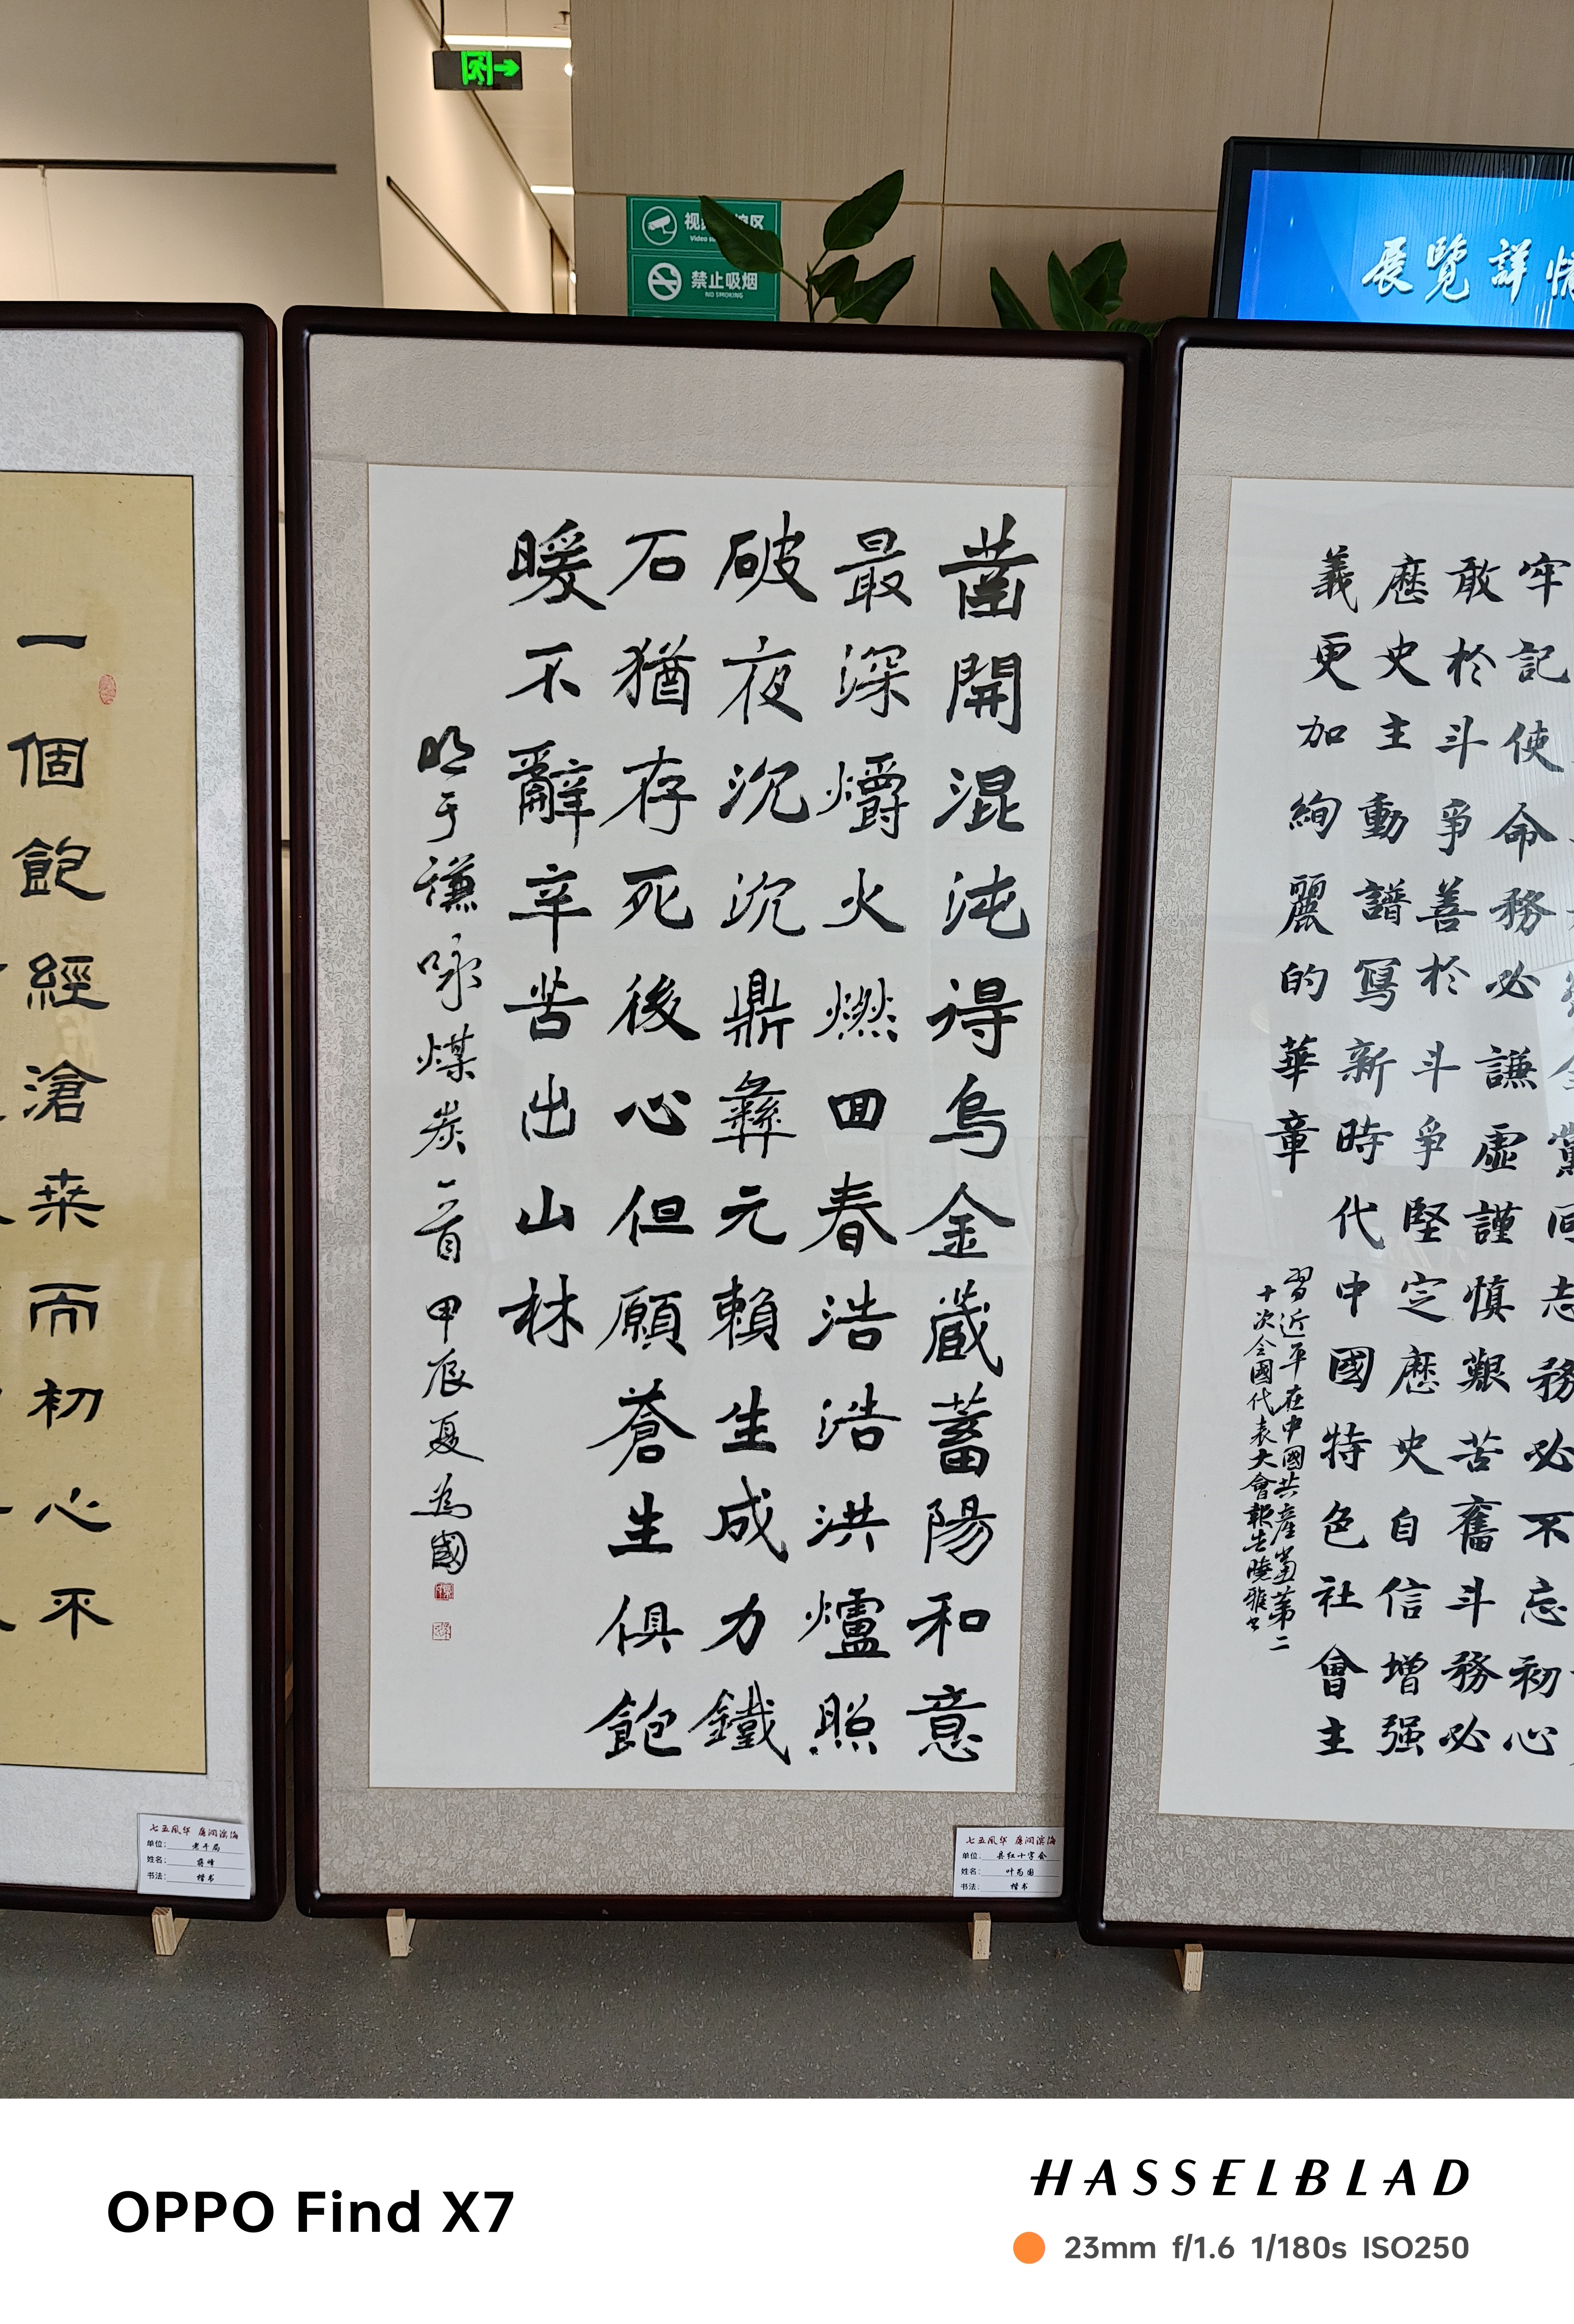 展覽詳情
禁止吸烟
NO SMOKING
一個飽經滄桒而初心不
凿開混沌得烏金蔵蓄陽和意
最深爝火燃囬春浩浩洪爐照
破夜沉沉鼎彝元賴生成力鐵
石猶存死後心但願蒼生俱飽
暖不辭辛苦出山林
明于謙咏煤炭一首甲辰夏為國
黨同志務必不忘初心
牢記使命務必謙虛謹慎艱苦奮斗務必
敢於斗爭善於斗爭堅定歷史自信增强
歷史主動譜寫新時代中國特色社會主
義更加絢麗的華章
習近平在中國共產黨第二
十次全國代表大會報告曉雅书
七五風华 廉润滨海
单位：老干局
姓名：蒋峰
书法：楷书
七五風华 廉润滨海
单位：县红十字会
姓名：叶为国
书法：楷书
OPPO Find X7
HASSELBLAD
23mm f/1.6 1/180s ISO250